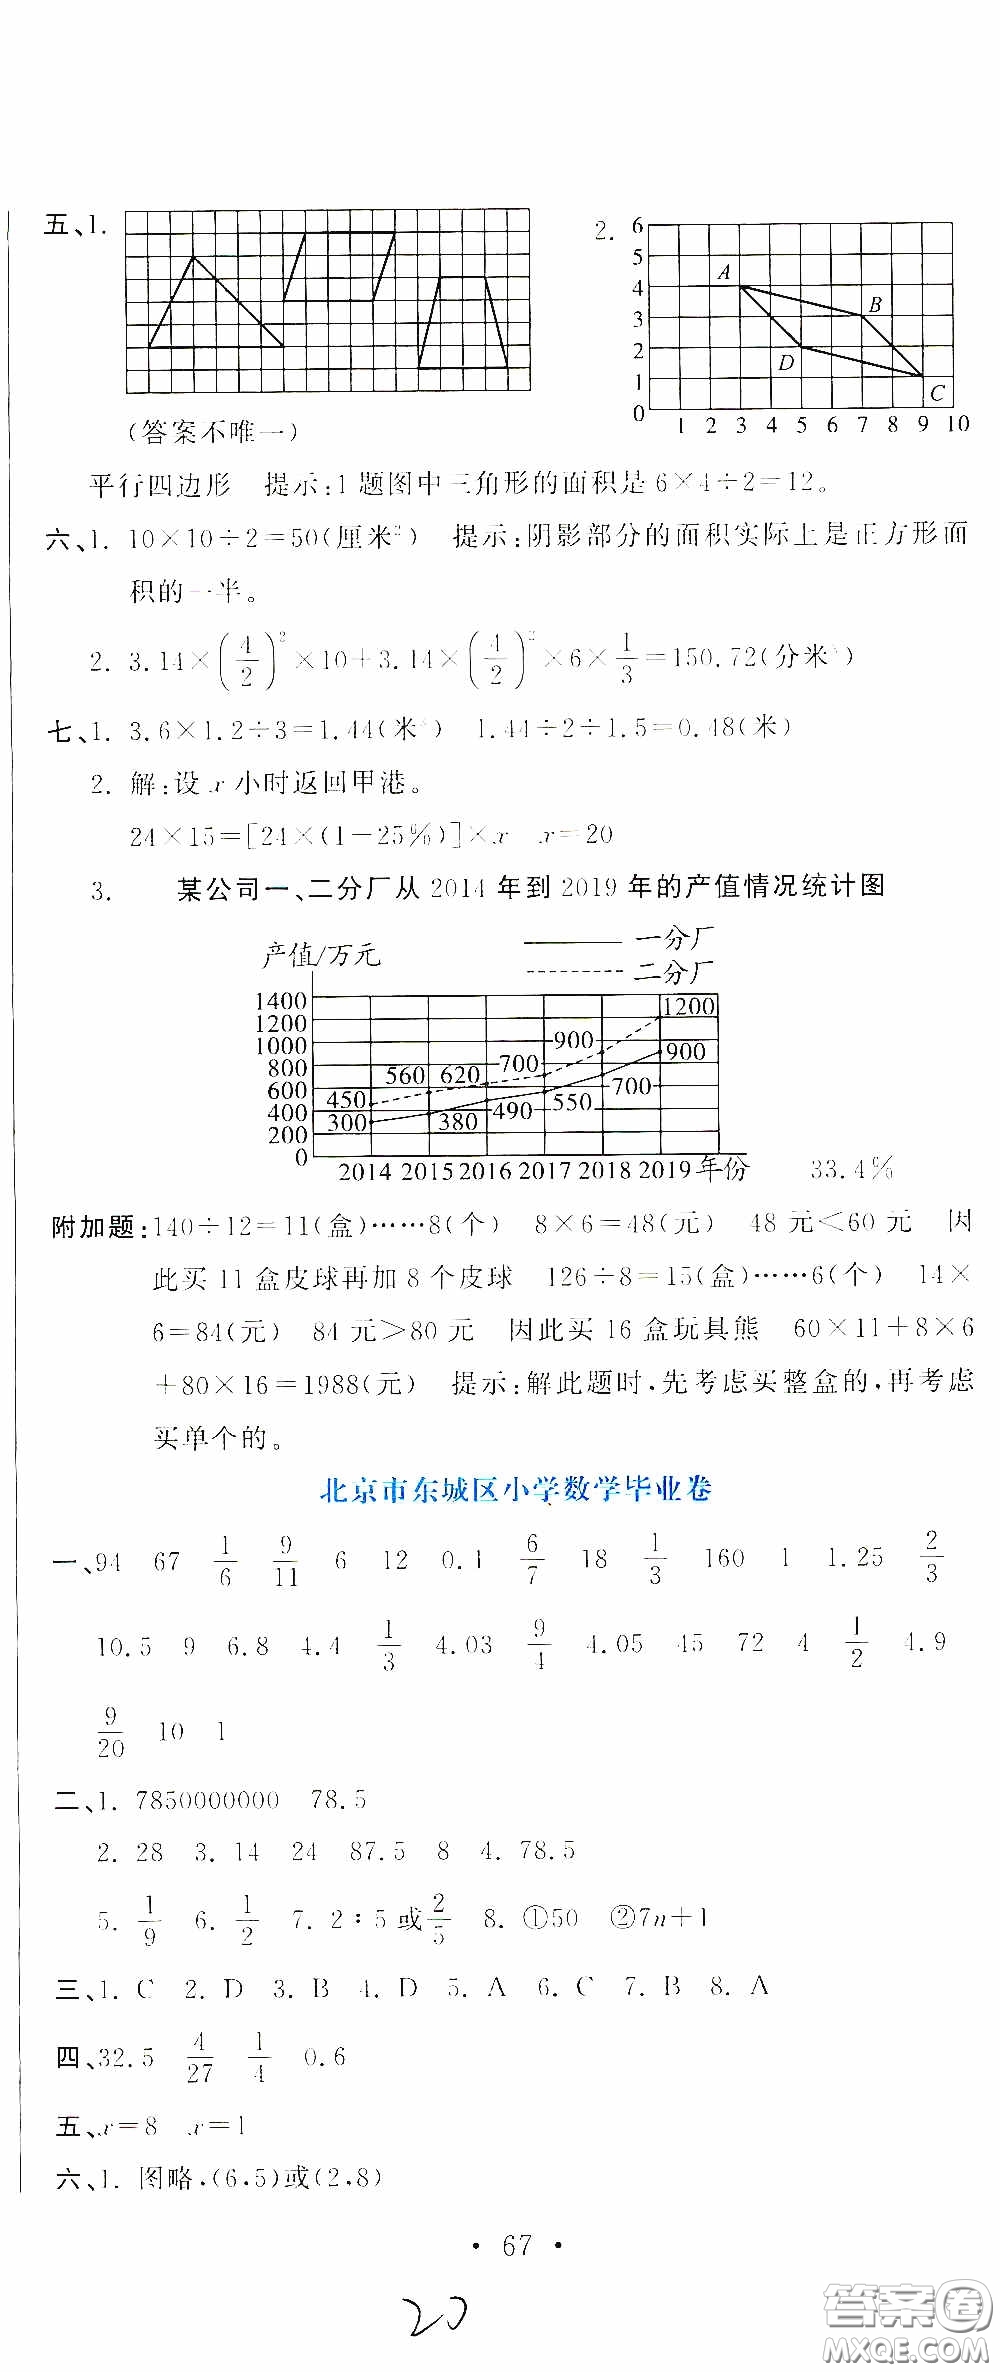 五、1.
2.
6
5
4
3
2
1
0
1 2 3 4 5 6 7 8 9 10
A
B
D
C
(答案不唯一)
平行四边形 提示:1题图中三角形的面积是6×4÷2=12。
六、1. 10×10÷2=50(厘米²) 提示:阴影部分的面积实际上是正方形面
积的一半。
2. 3.14×(4/2)²×10+3.14×(4/2)²×6×1/3=150.72(分米³)
七、1. 3.6×1.2÷3=1.44(米²) 1.44÷2÷1.5=0.48(米)
2. 解:设x小时返回甲港。
24×15=[24×(1-25%)]×x x=20
3. 某公司一、二分厂从2014年到2019年的产值情况统计图
产值/万元
一分厂
二分厂
1400
1200
1000
800
600
400
200
0
450 560 620 700 900 1200
300 380 490 550 700 900
2014 2015 2016 2017 2018 2019 年份
33.4%
附加题:140÷12=11(盒)……8(个) 8×6=48(元) 48元<60元 因
此买11盒皮球再加8个皮球 126÷8=15(盒)……6(个) 14×
6=84(元) 84元>80元 因此买16盒玩具熊 60×11+8×6
+80×16=1988(元) 提示:解此题时,先考虑买整盒的,再考虑
买单个的。
北京市东城区小学数学毕业卷
一、94 67 1/6 9/11 6 12 0.1 6/7 18 1/3 160 1 1.25 2/3
10.5 9 6.8 4.4 1/3 4.03 9/4 4.05 45 72 4 1/2 4.9
9/20 10 1
二、1. 7850000000 78.5
2. 28 3. 14 24 87.5 8 4. 78.5
5. 1/9 6. 1/2 7. 2∶5或2/5 8. ①50 ②7n+1
三、1. C 2. D 3. B 4. D 5. A 6. C 7. B 8. A
四、32.5 4/27 1/4 0.6
五、x=8 x=1
六、1. 图略,(6,5)或(2,8)
· 67 ·
20
答案卷
MXQE.COM